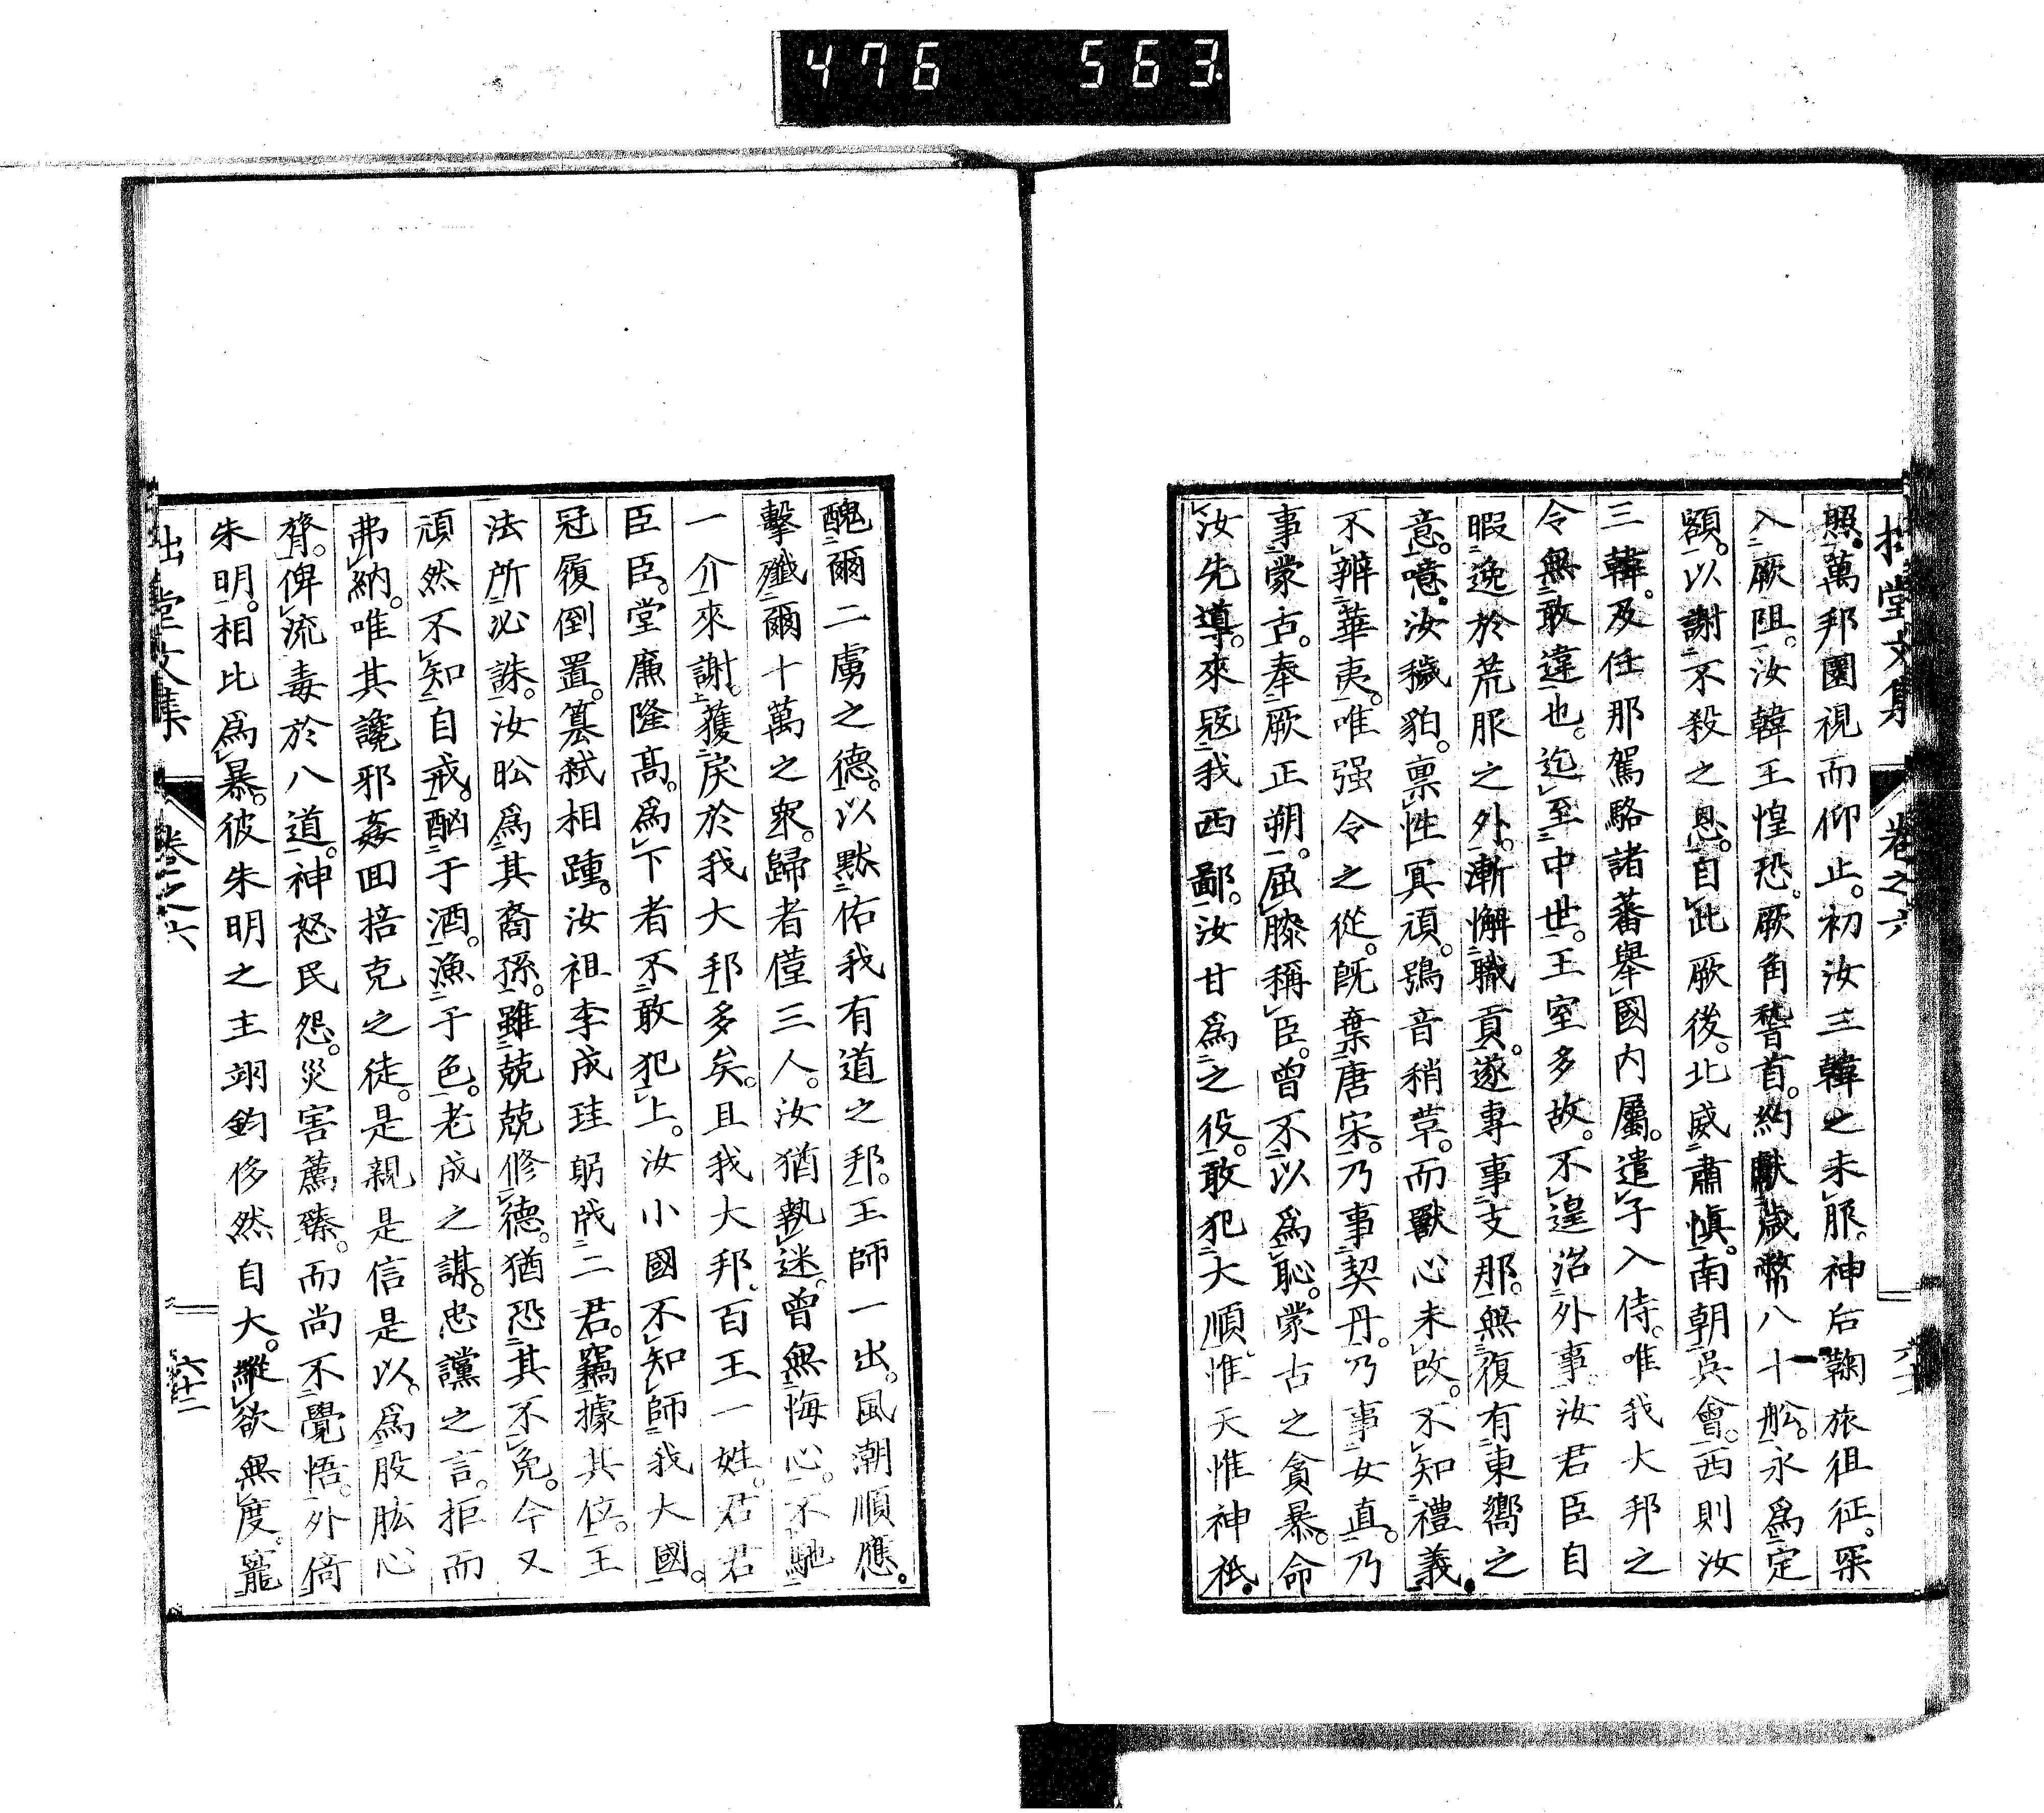 476 563.
拙堂文集 卷之六
照。萬邦圜視而仰止。初汝三韓之未服。神后鞠旅徂征。罙
入厥阻。汝韓王惶恐。厥角稽首。約獻歲幣八十船。永爲定
額。以謝不殺之恩。自此厥後。北威肅愼。南朝吳會。西則汝
三韓。及任那駕駱諸蕃。舉國內屬。遣子入侍。唯我大邦之
令無敢違也。迄至中世。王室多故。不遑治外事。汝君臣自
暇逸於荒服之外。漸懈職貢。遂專事支那。無復有東嚮之
意。噫。汝穢貊。稟性冥頑。鴞音稍革。而獸心未改。不知禮義。
不辨華夷。唯强令之從。既棄唐宋。乃事契丹。乃事女直。乃
事蒙古。奉厥正朔。屈膝稱臣。曾不以爲恥。蒙古之貪暴。命
汝先導。來寇我西鄙。汝甘爲之役。敢犯大順。惟天惟神祇。
醜爾二虜之德。以默佑我有道之邦。王師一出。風潮順應。
擊殲爾十萬之衆。歸者僅三人。汝猶執迷。曾無悔心。不馳
一介來謝。獲戾於我大邦多矣。且我大邦。百王一姓。君君
臣臣。堂廉隆高。爲下者不敢犯上。汝小國不知師我大國。
冠履倒置。簒弒相踵。汝祖李成珪躬戕二君。竊據其位。王
法所必誅。汝昖爲其裔孫。雖兢兢修德。猶恐其不免。今又
頑然不知自戒。酗于酒。漁于色。老成之謀。忠讜之言。拒而
弗納。唯其讒邪姦回掊克之徒。是親是信是以。爲股肱心
膂。俾流毒於八道。神怒民怨。災害薦臻。而尚不覺悟。外倚
朱明。相比爲暴。彼朱明之主翊鈞侈然自大。縱欲無度。寵
拙堂文集 卷之六 六十二